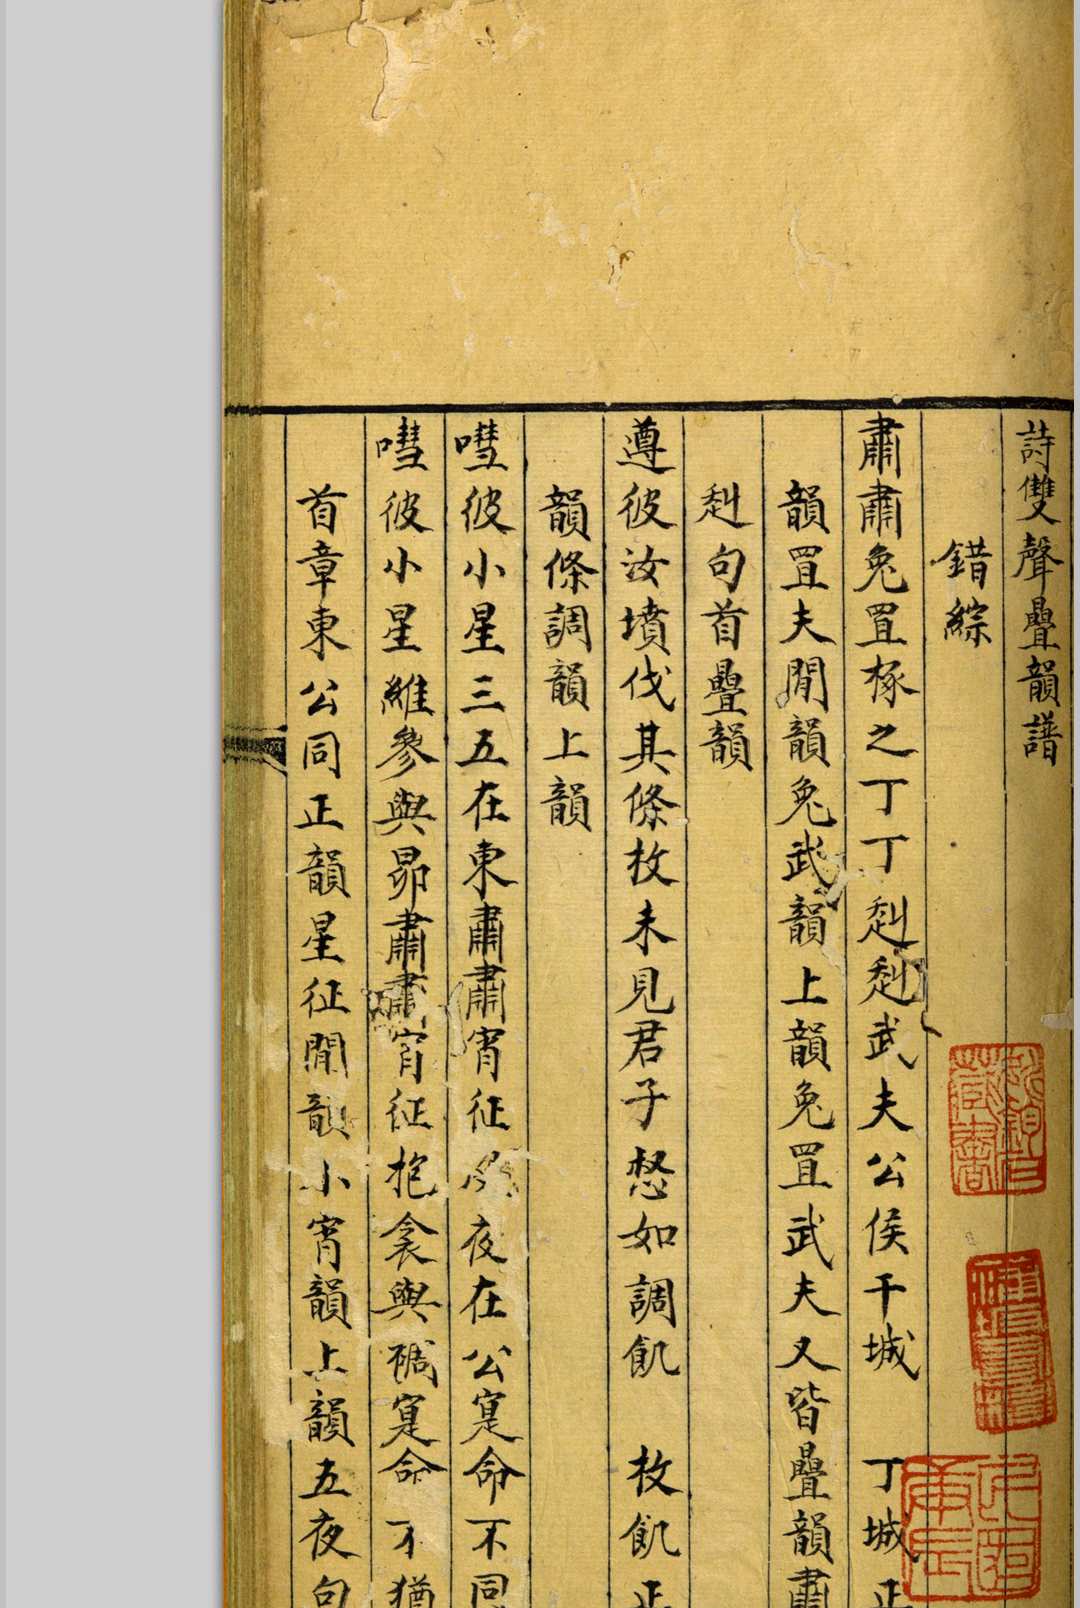 詩雙聲疊韻譜
錯綜
肅肅兔罝椓之丁丁赳赳武夫公侯干城　丁城正
韻罝夫閒韻兔武韻上韻兔罝武夫又皆疊韻肅
赳句首疊韻
遵彼汝墳伐其條枚未見君子惄如調飢　枚飢正
韻條調韻上韻
嘒彼小星三五在東肅肅宵征夜在公寔命不同
嘒彼小星維參與昴肅肅宵征抱衾與裯寔命不猶
首章東公同正韻星征閒韻小宵韻上韻五夜句